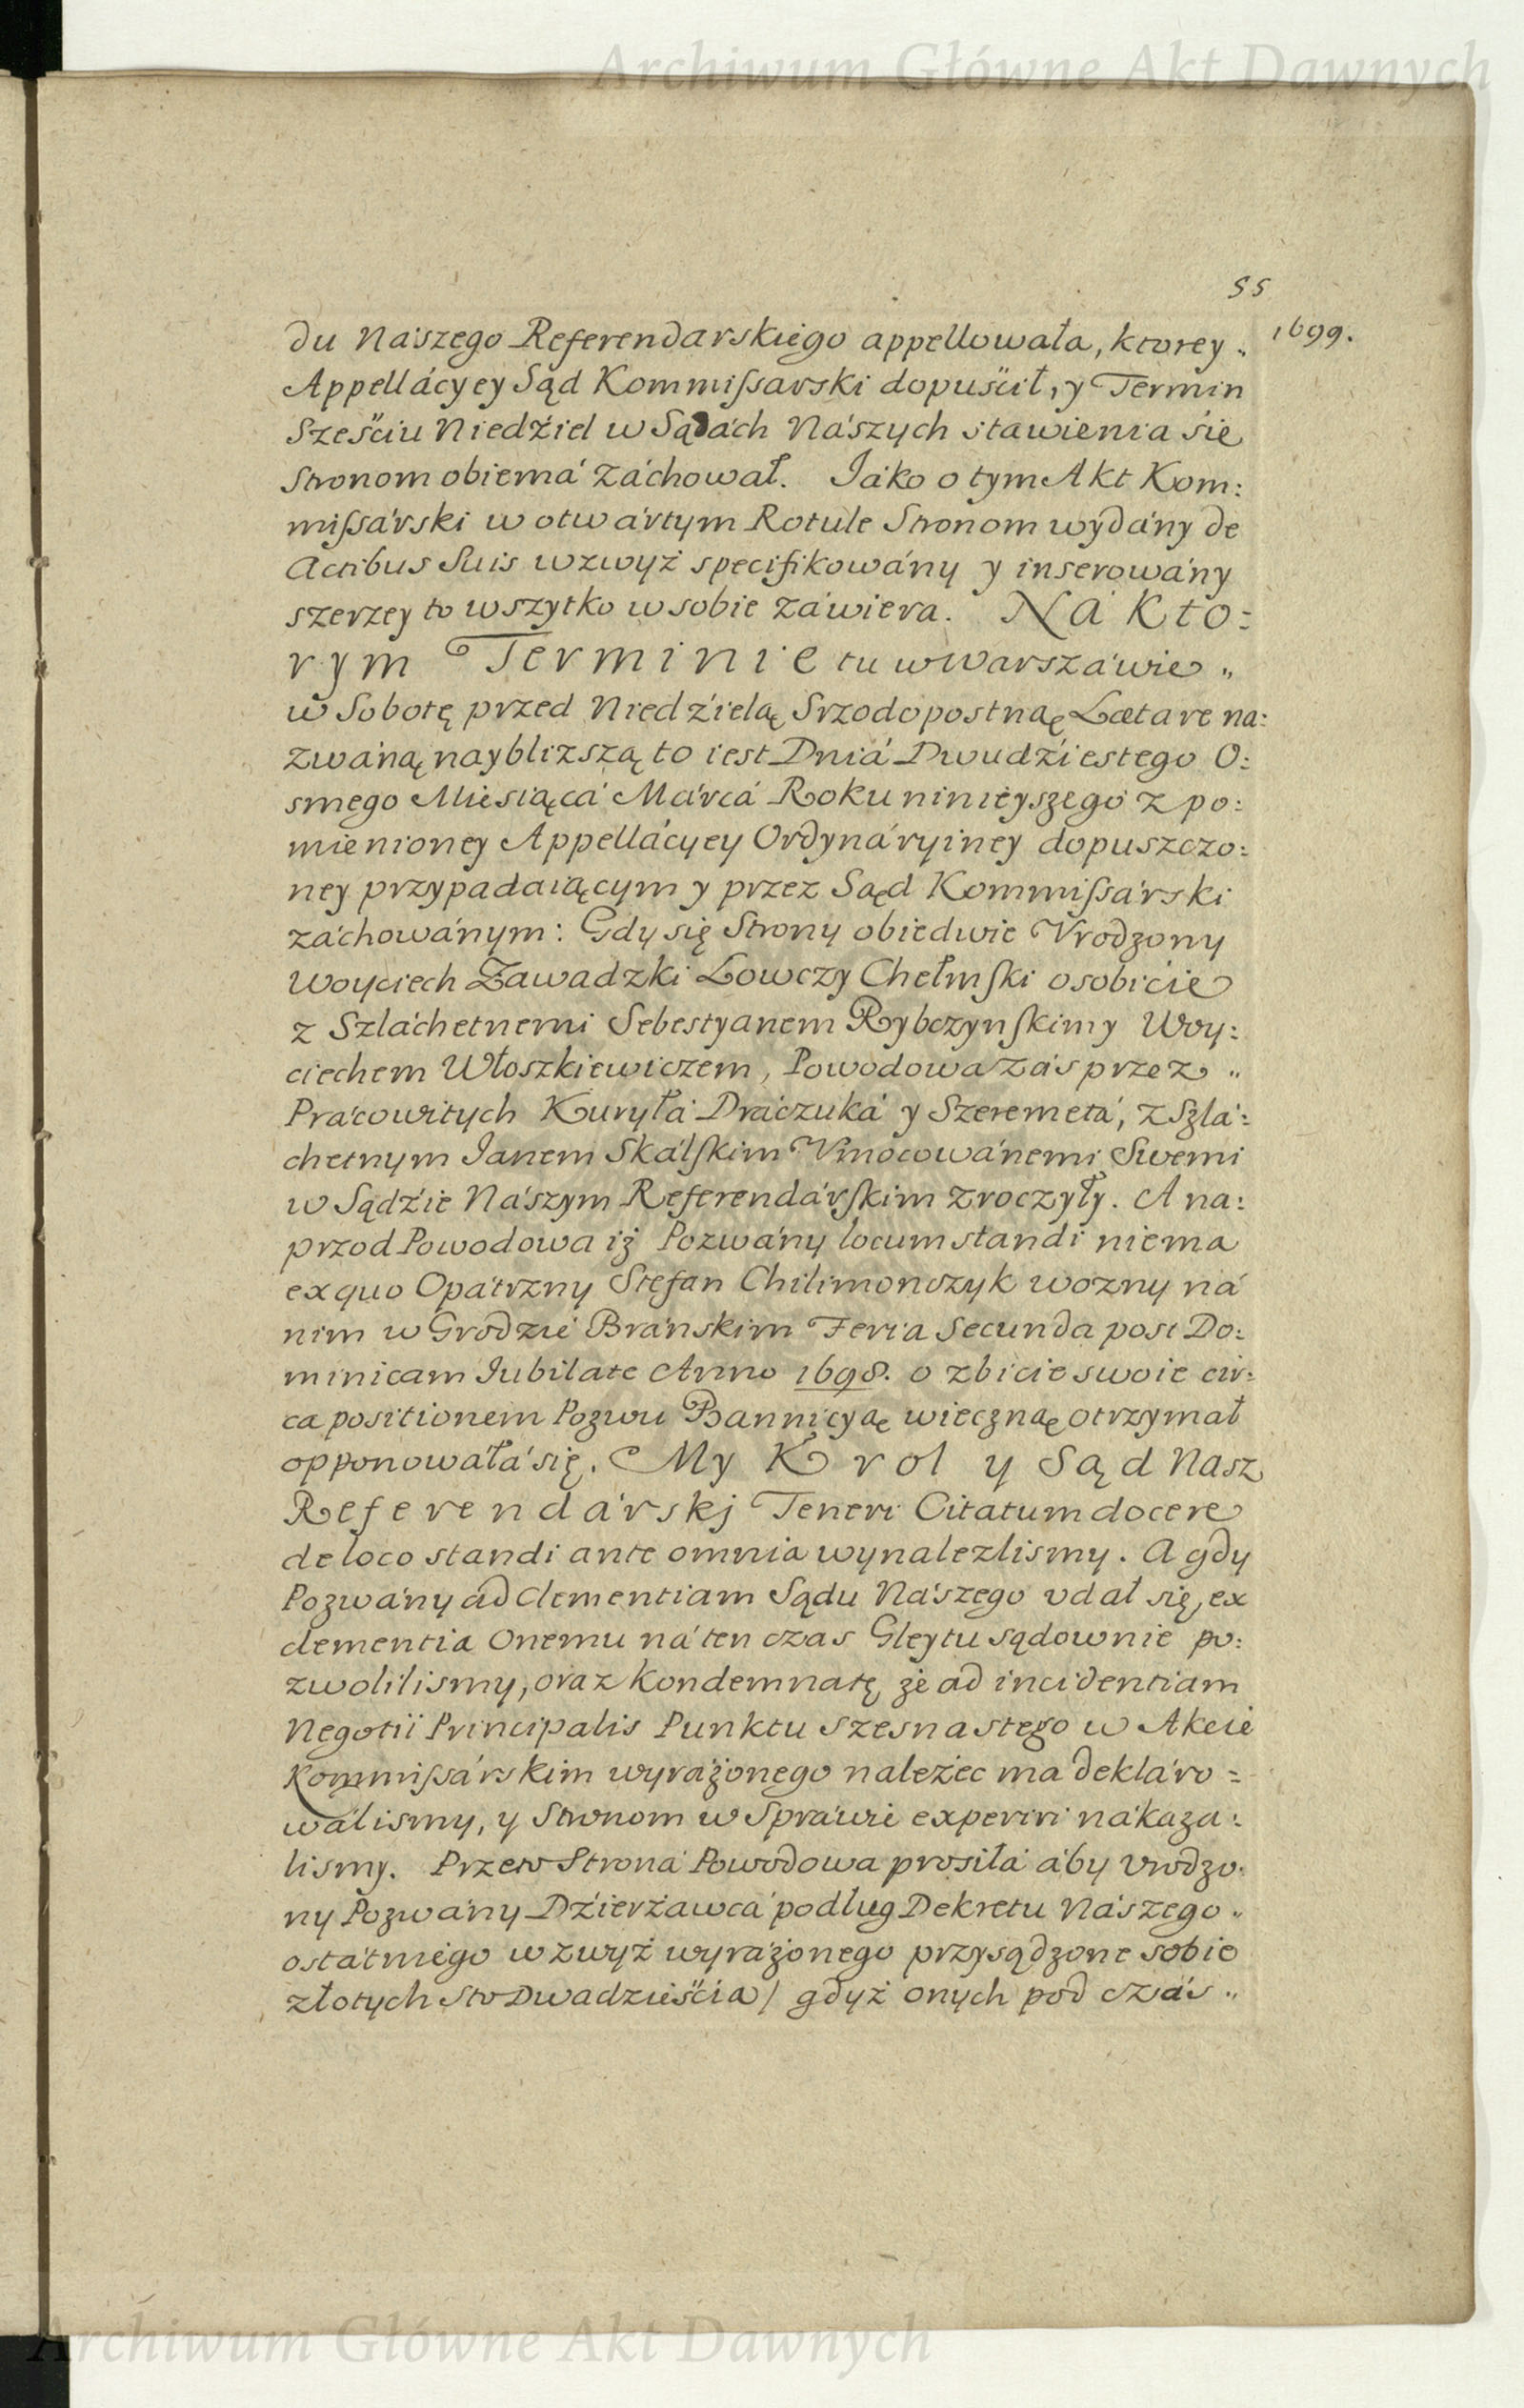 Archiwum Główne Akt Dawnych
55
1699.
du Nászego Referendarskiego appellowała, ktorey „
Appellácyey Sąd Kommiſsarski dopuścił, y Termin
Sześciu Niedźiel w Sądách Nászych stawienia śie
Stronom obiemá záchował. Jáko o tym Akt Kom:
miſsárski w otwártym Rotule Stronom wydány de
Actibus Suis wzwyż specifikowány y inserowány
szerzey to wszytko w sobie záwiera. Ná Kto:
rym Terminie tu w Warszáwie „
w Sobotę przed Niedźielą Srzodopostną Lætare na:
zwáną naybliższą to iest Dniá Dwudźiestego O:
smego Miesiącá Márcá Roku ninieyszego z po:
mienioney Appellácyey Ordynáryiney dopuszczo:
ney przypadaiącym y przez Sąd Kommiſsárski
záchowánym: Gdy się Strony obiedwie Vrodzony
Woyciech Zawadzki Łowczy Chełmſki osobiście
z Szláchetnemi Sebestyanem Rybczynſkim y Woy:
ciechem Włoszkiewiczem, Powodowa záś przez „
Prácowitych Kuryłá Dráczuká y Szeremetá, z Szlá:
chetnym Ianem Skálſkim Vmocowánemi Swemi
w Sądźie Nászym Referendárſkim zroczyły. A na:
przod Powodowa iż Pozwány locum standi niema
ex quo Opátrzny Stefan Chilimonczyk wozny ná
nim w Grodzie Bránskim Feria Secunda post Do:
minicam Iubilate Anno 1698. o zbicie swoie cir:
ca positionem Pozwu Bannicyą wieczną otrzymał
opponowáłá się. My Krol y Sąd Nasz
Referendárskj Teneri Citatum docere
de loco standi ante omnia wynalezlismy. A gdy
Pozwány ad Clementiam Sądu Nászego vdał się, ex
clementia Onemu ná ten czas Gleytu sądownie po:
zwolilismy, oraz Kondemnatę że ad incidentiam
Negotii Principalis Punktu szesnastego w Akcie
Kommiſsárskim wyráżonego należec ma dekláro:
wálismy, y Stronom w Spráwie experiri nákaza:
lismy. Przeto Stroná Powodowa prosiłá áby Vrodzo:
ny Pozwány Dźierżawcá podług Dekretu Nászego „
ostátniego wzwyż wyráżonego przysądzone sobie
złotych Sto Dwadzieściá / gdyż onych pod czás „
Archiwum Główne Akt Dawnych